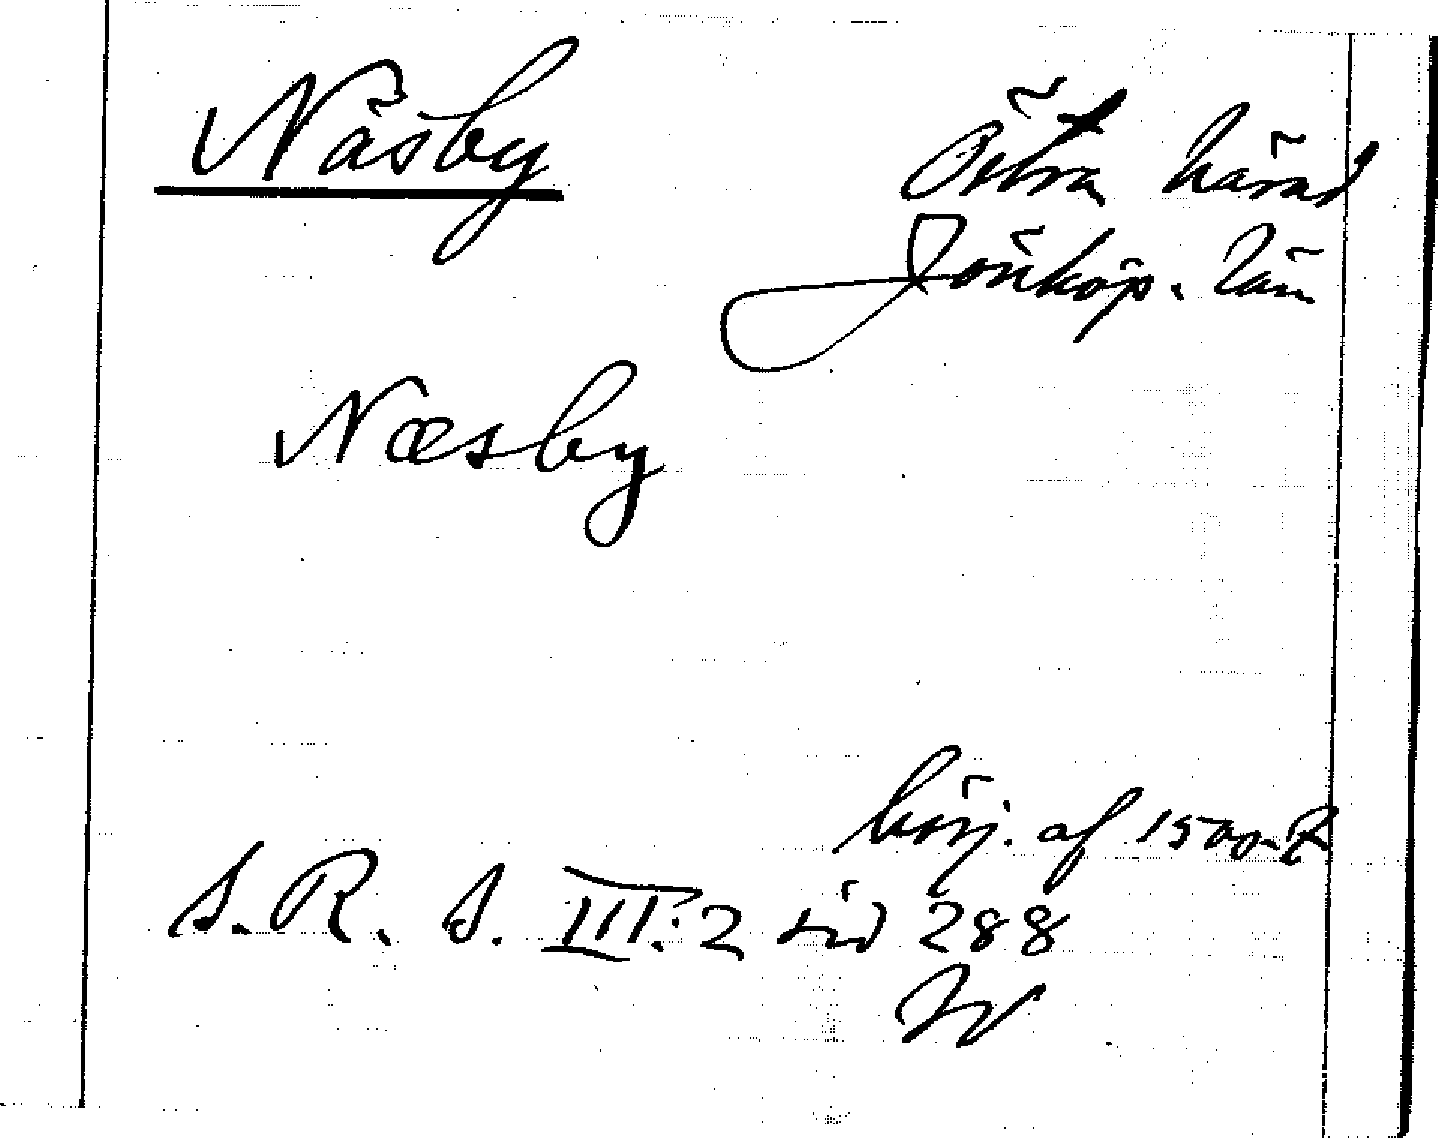 Näsby
Östra härad
Jönköp. län
Næsby
börj. af 1500-t
S. R. S. III:2 sid 288